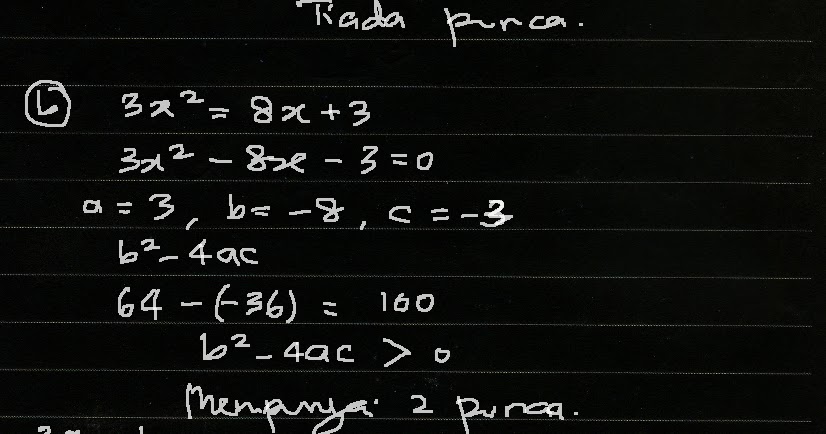 Tiada punca.
(b) 3x² = 8x + 3
3x² - 8x - 3 = 0
a = 3, b = -8, c = -3
b² - 4ac
64 - (-36) = 100
b² - 4ac > 0
Mempunyai 2 punca.